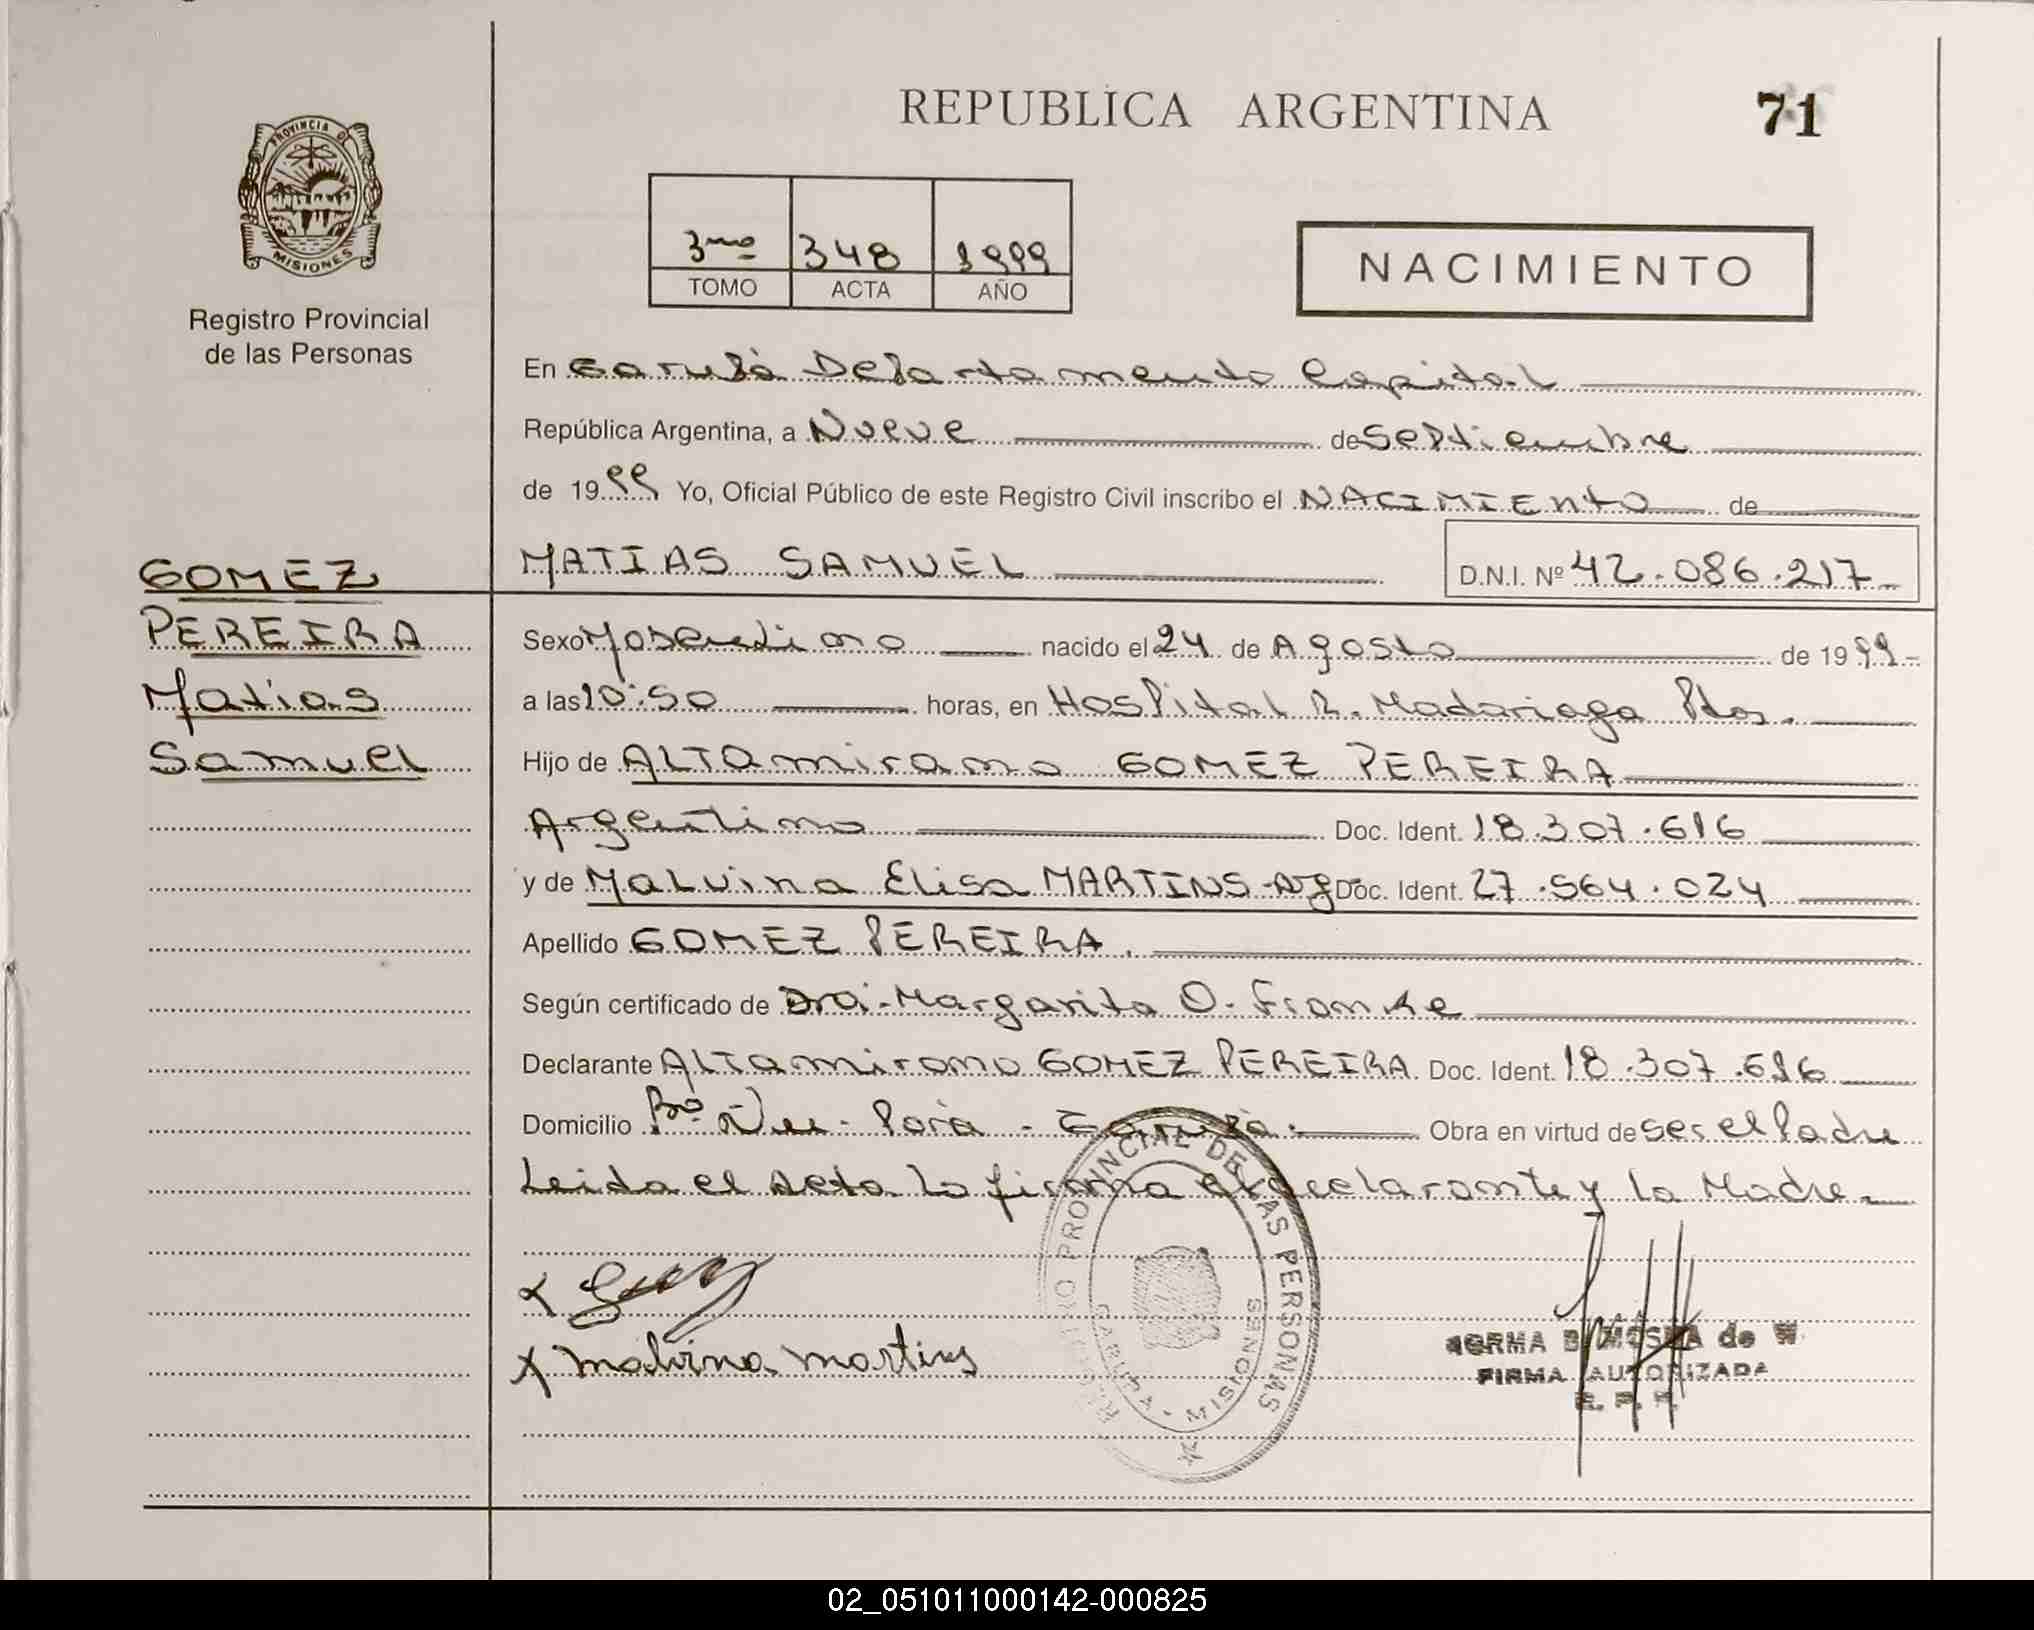 REPUBLICA ARGENTINA
71
PROVINCIA DE
MISIONES
Registro Provincial
de las Personas
3ro 348 1999
TOMO ACTA AÑO
NACIMIENTO
En Garupá Departamento Capital
República Argentina, a Nueve de Septiembre
de 1999 Yo, Oficial Público de este Registro Civil inscribo el NACIMIENTO de
MATIAS SAMUEL D.N.I. Nº 42.086.217
GOMEZ
PEREIRA
Matias
Samuel
Sexo Masculino nacido el 24 de Agosto de 1999
a las 10:50 horas, en Hospital R. Madariaga Pdas.
Hijo de ALTAmirano GOMEZ PEREIRA
Argentino Doc. Ident. 18.307.616
y de MaLvina Elisa MARTINS-Arg Doc. Ident. 27.564.024
Apellido GOMEZ PEREIRA.
Según certificado de Dra. Margarita O. Franke
Declarante ALTAmirano GOMEZ PEREIRA Doc. Ident. 18.307.616
Domicilio Bº Ñu - Porá - Garupá. Obra en virtud de ser el Padre
Leida el Acta la firma el declarante y la Madre.
REGISTRO PROVINCIAL DE LAS PERSONAS
GARUPA - MISIONES
x
x Malvina Martins
NORMA B. de W
FIRMA AUTORIZADA
R. P. P.
02_051011000142-000825